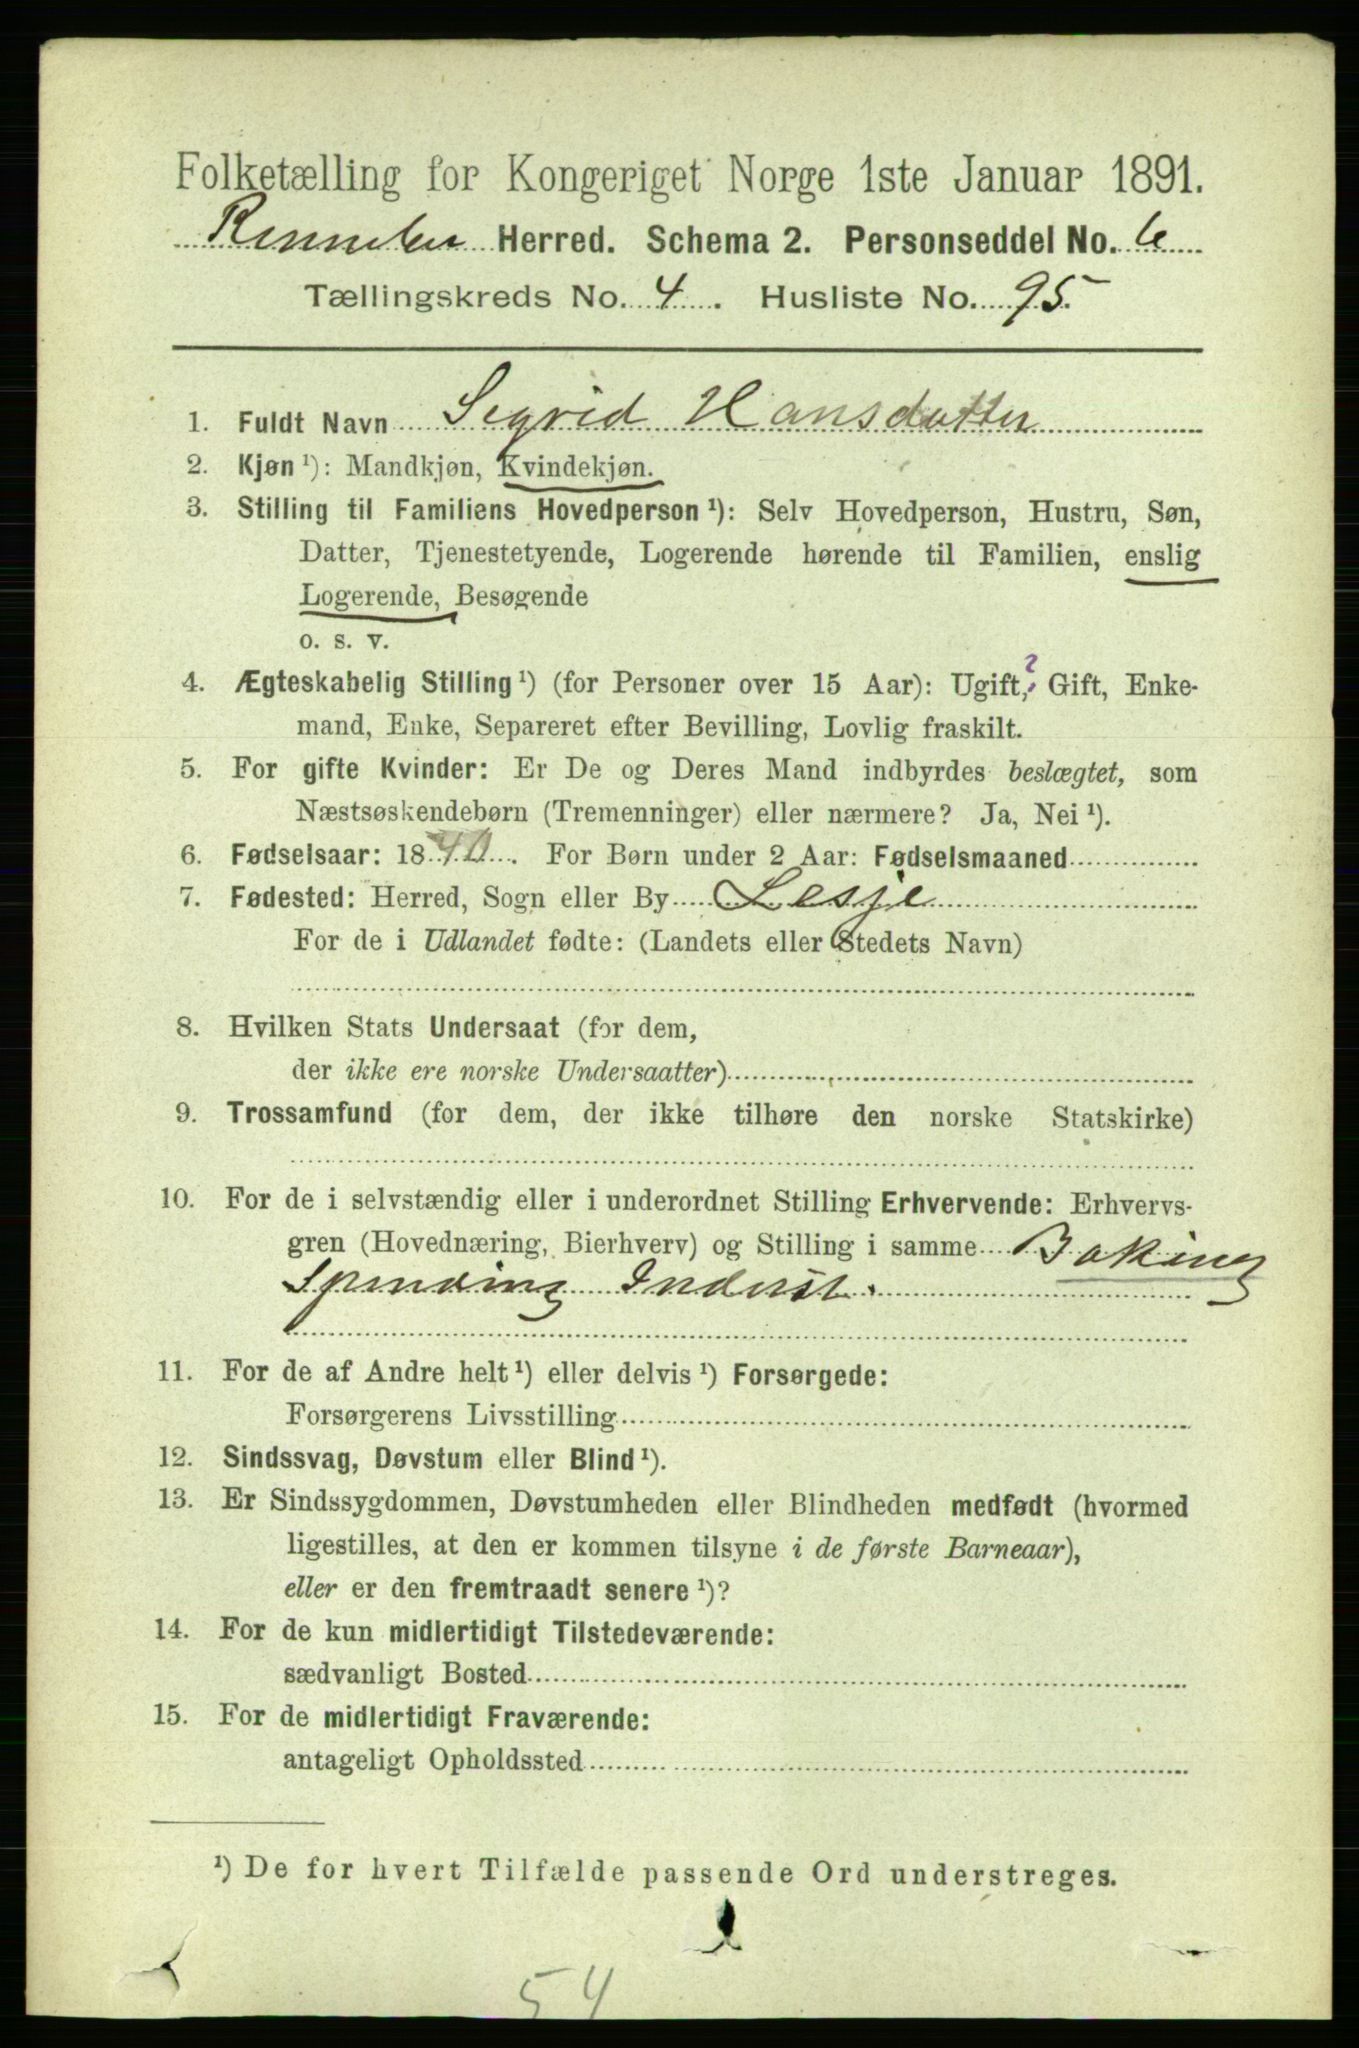 Folketælling for Kongeriget Norge 1ste Januar 1891.
Rennebu Herred. Schema 2. Personseddel No. 6
Tællingskreds No. 4. Husliste No. 95.
1. Fuldt Navn Segrid Hansdatter
2. Kjøn ¹): Mandkjøn, Kvindekjøn.
3. Stilling til Familiens Hovedperson ¹): Selv Hovedperson, Hustru, Søn,
Datter, Tjenestetyende, Logerende hørende til Familien, enslig
Logerende, Besøgende
o. s. v.
4. Ægteskabelig Stilling ¹) (for Personer over 15 Aar): Ugift,? Gift, Enke-
mand, Enke, Separeret efter Bevilling, Lovlig fraskilt.
5. For gifte Kvinder: Er De og Deres Mand indbyrdes beslægtet, som
Næstsøskendebørn (Tremenninger) eller nærmere? Ja, Nei ¹).
6. Fødselsaar: 1840. For Børn under 2 Aar: Fødselsmaaned
7. Fødested: Herred, Sogn eller By Lesje
For de i Udlandet fødte: (Landets eller Stedets Navn)
8. Hvilken Stats Undersaat (for dem,
der ikke ere norske Undersaatter)
9. Trossamfund (for dem, der ikke tilhøre den norske Statskirke)
10. For de i selvstændig eller i underordnet Stilling Erhvervende: Erhvervs-
gren (Hovednæring, Bierhverv) og Stilling i samme Baking
Spinding Inderst.
11. For de af Andre helt ¹) eller delvis ¹) Forsørgede:
Forsørgerens Livsstilling
12. Sindssvag, Døvstum eller Blind ¹).
13. Er Sindssygdommen, Døvstumheden eller Blindheden medfødt (hvormed
ligestilles, at den er kommen tilsyne i de første Barneaar),
eller er den fremtraadt senere ¹)?
14. For de kun midlertidigt Tilstedeværende:
sædvanligt Bosted
15. For de midlertidigt Fraværende:
antageligt Opholdssted
¹) De for hvert Tilfælde passende Ord understreges.
54